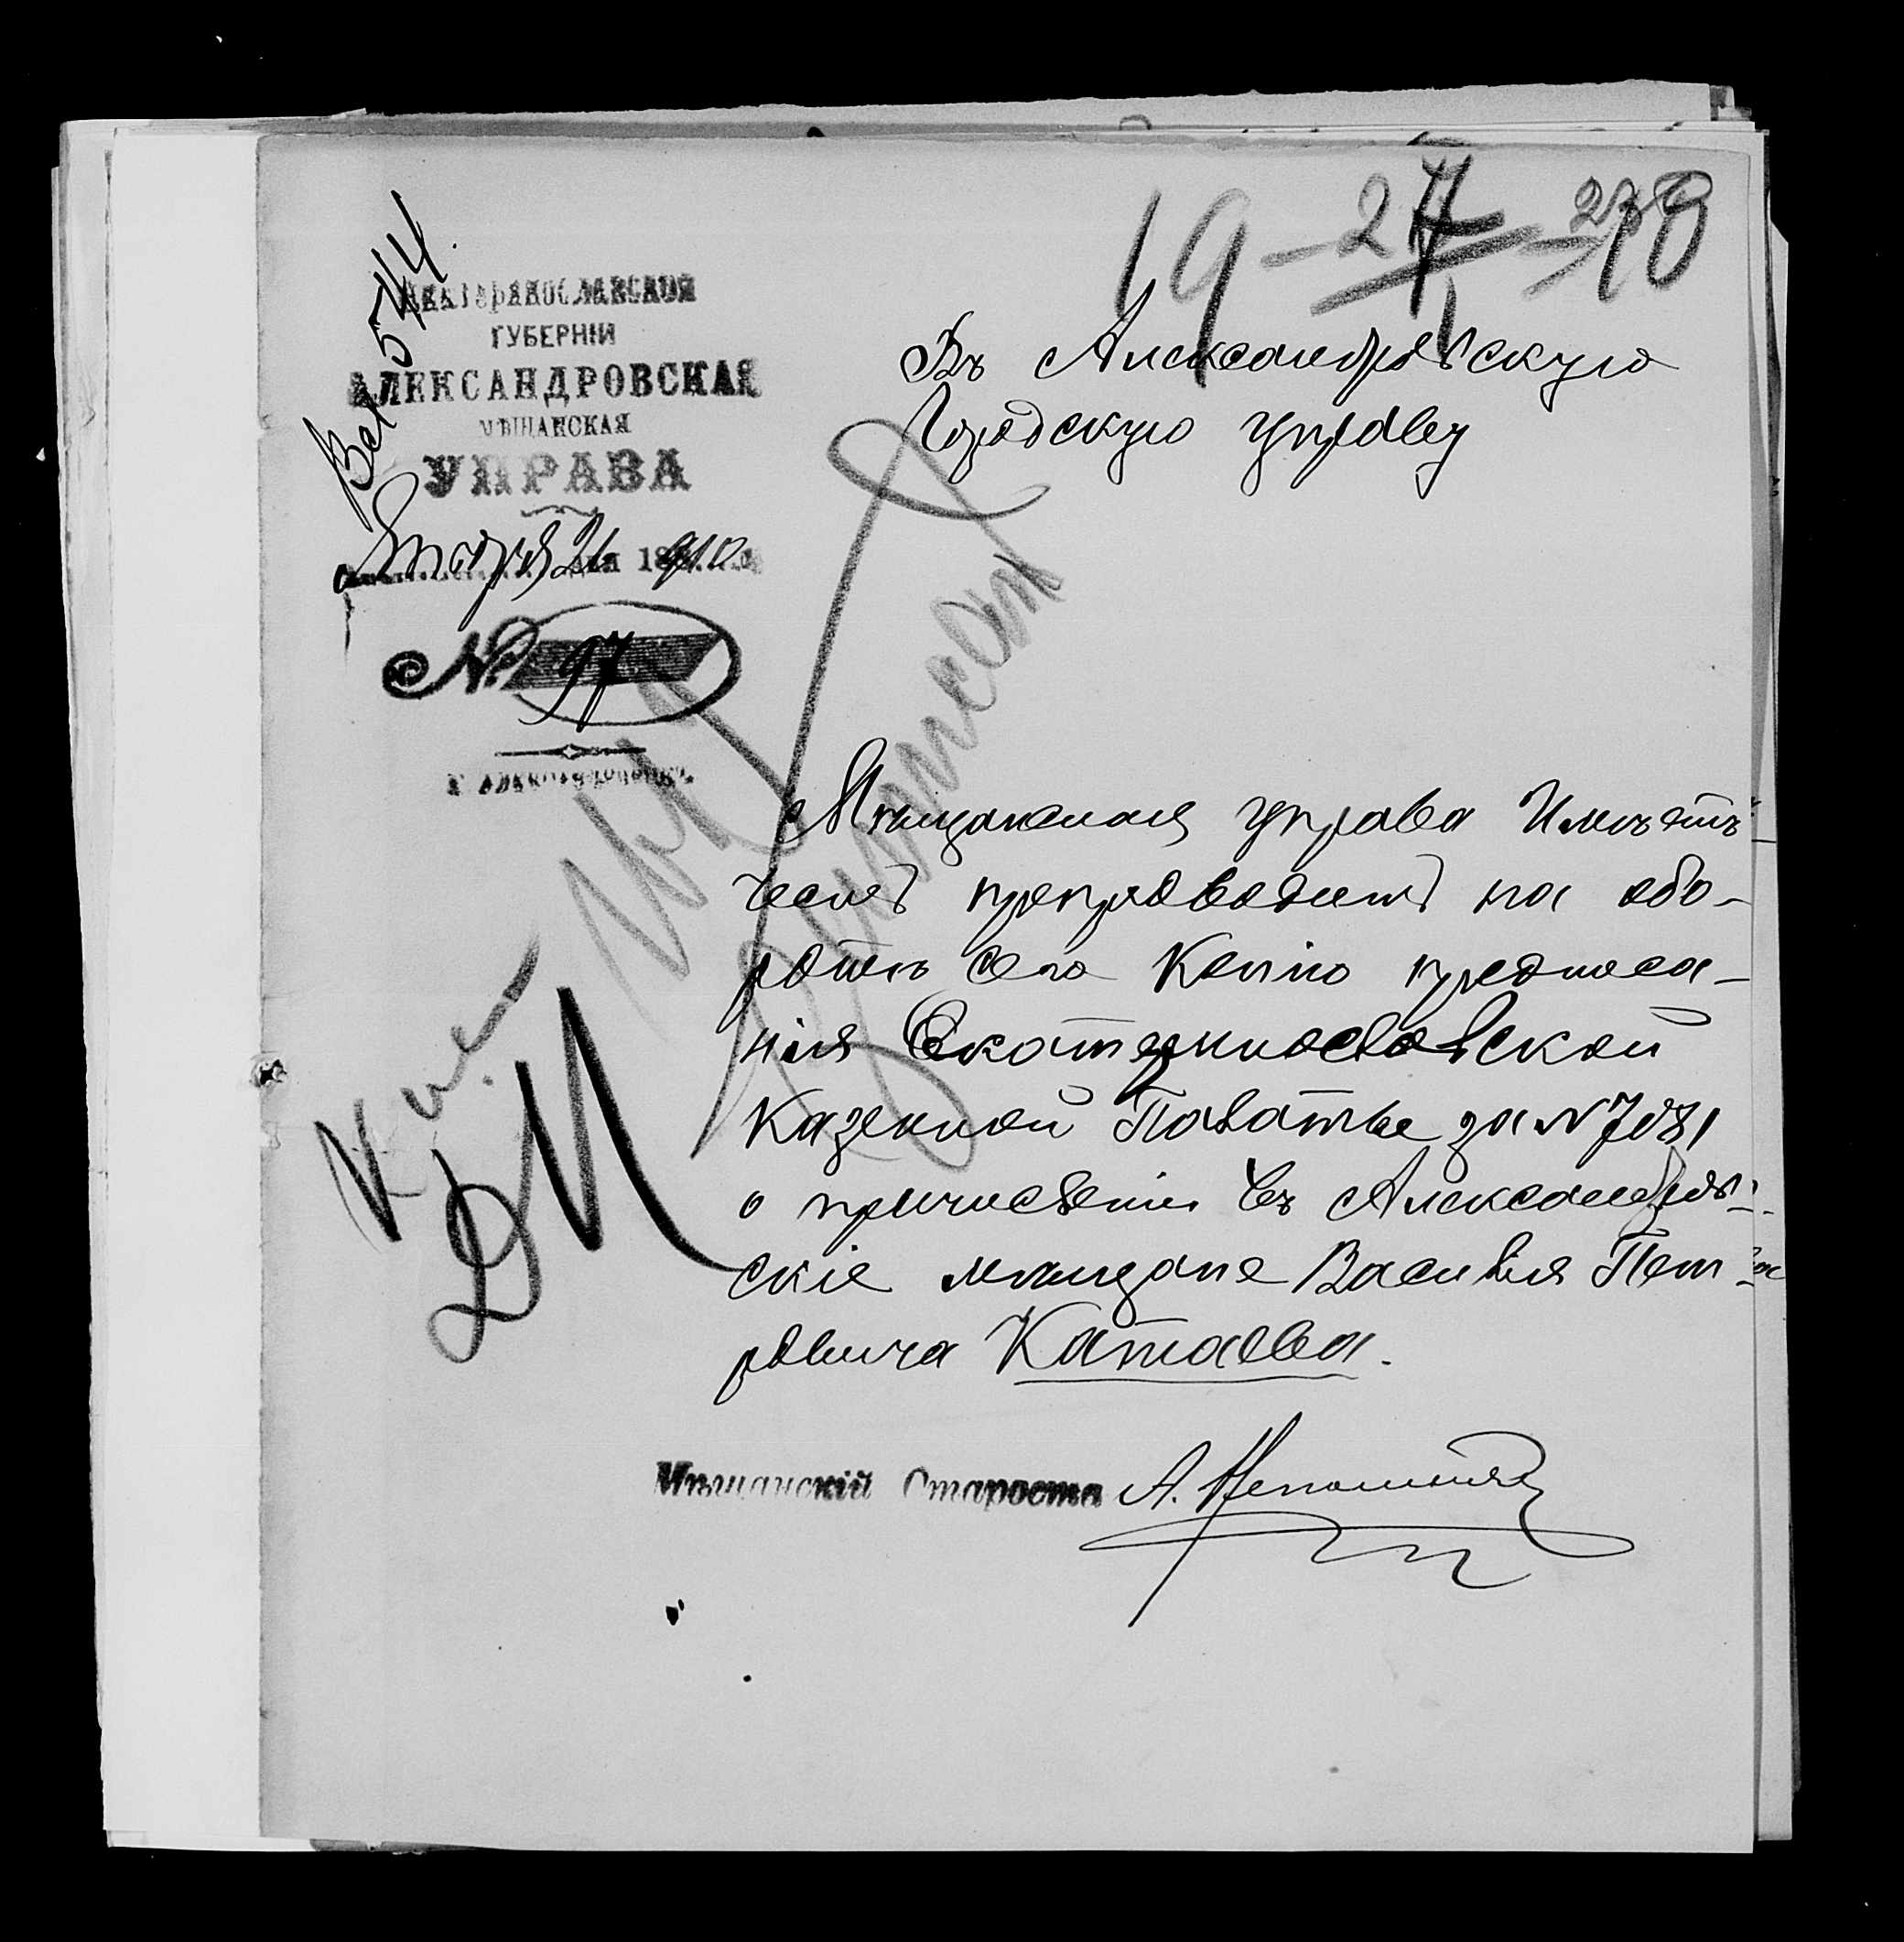 19 - 27 - 278
Вх 574.
Екатеринославской
ГУБЕРНІИ
АЛЕКСАНДРОВСКАЯ
МѢЩАНСКАЯ
УПРАВА
Января 26 дня 1910
№ 97
г. Александровскъ.
Въ Александровскую
Городскую управу
Мѣщанская управа Имѣетъ
честь препроводить на обо-
ротѣ сего Копію предписа-
нія Екатеринославской
Казенной Палаты за № 7081
о причисленіи въ Александров-
скіе мѣщане Василія Пет-
ровича Катаева.
Мѣщанскій Староста А.